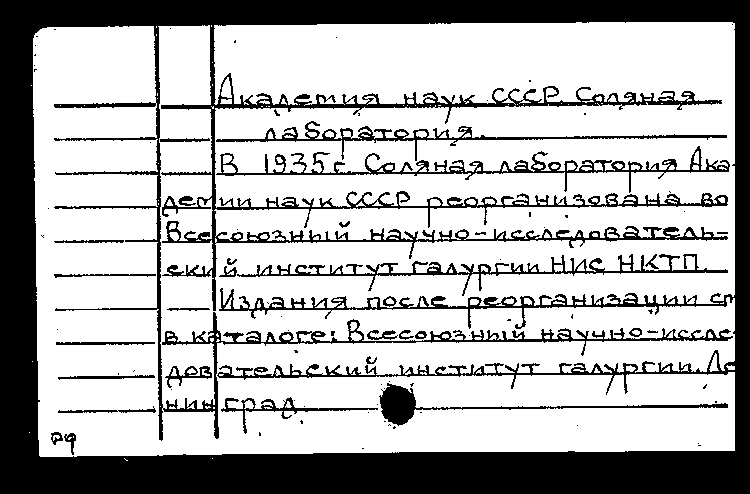 Академия наук СССР. Соляная
лаборатория.
В 1935 г. Соляная лаборатория Ака-
демии наук СССР реорганизована во
Всесоюзный научно-исследователь-
ский институт галургии НИС НКТП.
Издания после реорганизации см
в каталоге: Всесоюзный научно-иссле-
довательский институт галургии. Ле
нинград.